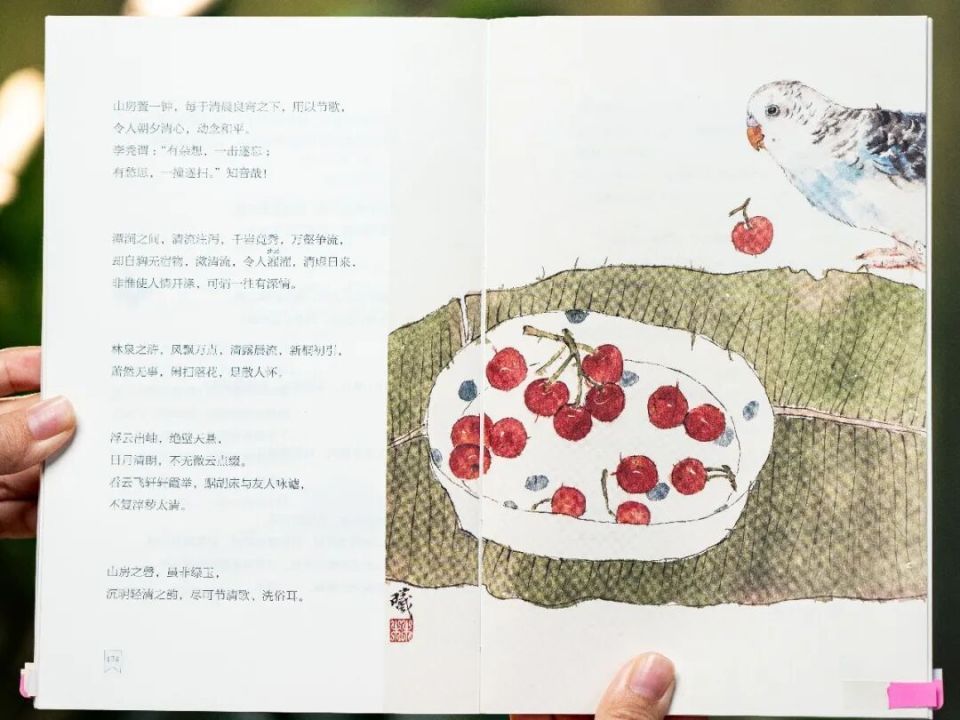 山房置一钟，每于清晨良宵之下，用以节歌，
令人朝夕清心，动念和平。
李秃谓：“有杂想，一击遂忘；
有愁思，一撞遂扫。”知音哉！
潭涧之间，清流注泻，千岩竞秀，万壑争流，
却自胸无宿物，漱清流，令人濯濯，清虚日来，
非惟使人情开涤，可谓一往有深情。
林泉之浒，风飘万点，清露晨流，新桐初引，
萧然无事，闲扫落花，足散人怀。
浮云出岫，绝壁天悬，
日月清朗，不无微云点缀。
看云飞轩轩霞举，踞胡床与友人咏谑，
不复滓秽太清。
山房之磬，虽非绿玉，
沉明轻清之韵，尽可节清歌、洗俗耳。
174